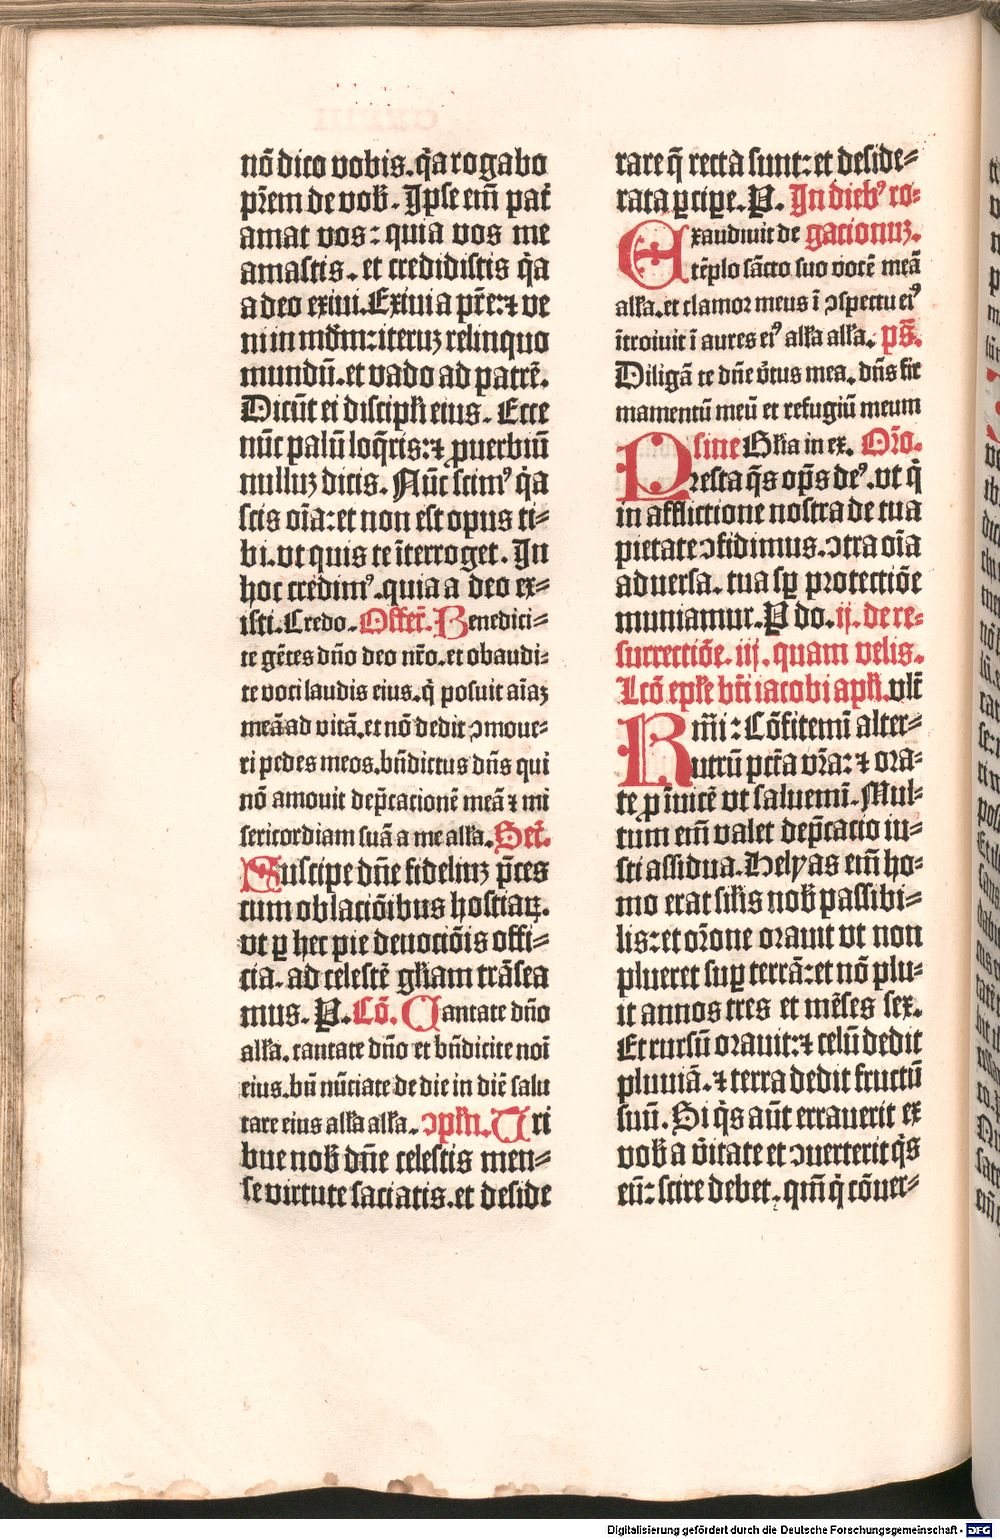 nō dico vobis. q̄a rogabo
pr̄em de vob̄. Ipse em̄ pat̄
amat vos: quia vos me
amastis. et credidistis q̄a
a deo exiui. Exiui a pr̄e: ⁊ ve
ni in md̄m: iteruꝫ relinquo
mundū. et vado ad patrē.
Dicūt ei discipl̄i eius. Ecce
nūc palū loq̄ris: ⁊ ꝓuerbiū
nulluꝫ dicis. Nūc scimꝰ q̄a
scis oīa: et non est opus ti⸗
bi. vt quis te īterroget. In
hoc credimꝰ. quia a deo ex⸗
isti. Credo. Offer̄. Benedici⸗
te gētes dn̄o deo nr̄o. et obaudi⸗
te voci laudis eius. q̄ posuit aīaꝫ
meā ad vitā. et nō dedit ↄmoue⸗
ri pedes meos. bn̄dictus dn̄s qui
nō amouit dep̄cacionē meā ⁊ mi
sericordiam suā a me all̄a. Sec̄.
Suscipe dn̄e fideliuꝫ p̄ces
cum oblaciōibus hostiaꝝ.
vt ꝑ hec pie deuociōis offi⸗
cia. ad celestē gl̄iam trāsea
mus. P. Cō. Cantate dn̄o
all̄a. cantate dn̄o et bn̄dicite noī
eius. bn̄ nūciate de die in diē salu
tare eius all̄a all̄a. ↄpl̄n. Tri
bue nob̄ dn̄e celestis men⸗
se virtute saciatis. et deside
rare q̄ recta sunt: et deside⸗
rata ꝑcipe. P. In diebꝰ ro⸗
Exaudiuit de gacionuꝫ.
tēplo sācto suo vocē meā
all̄a. et clamor meus ī ↄspectu eiꝰ
ītroiuit ī aures eiꝰ all̄a all̄a. ps̄.
Diligā te dn̄e v̄tus mea. dn̄s fir
mamentū meū et refugiū meum
sine Gl̄ia in ex. Or̄o.
Presta q̄s op̄s deꝰ. vt q̄
in afflictione nostra de tua
pietate ↄfidimus. ↄtra oīa
aduersa. tua sꝑ protectiōe
muniamur. P do. ij. de re⸗
surrectiōe. iij. quam velis.
Lcō epl̄e bt̄i iacobi apl̄i. vlt̄
Kmī: Cōfitemī alter⸗
utrū pct̄a vr̄a: ⁊ ora⸗
te ꝓ īuicē vt saluemī. Mul⸗
tum em̄ valet dep̄catio iu⸗
sti assidua. Helyas em̄ ho⸗
mo erat sil̄is nob̄ passibi⸗
lis: et or̄one orauit vt non
plueret suꝑ terrā: et nō plu⸗
it annos tres et mēses sex.
Et rursū orauit: ⁊ celū dedit
pluuiā. ⁊ terra dedit fructū
suū. Si q̄s aūt errauerit ex
vob̄ a v̄itate et ↄuerterit q̄s
eū: scire debet. qm̄ q̄ cōuer⸗
Digitalisierung gefördert durch die Deutsche Forschungsgemeinschaft - DFG